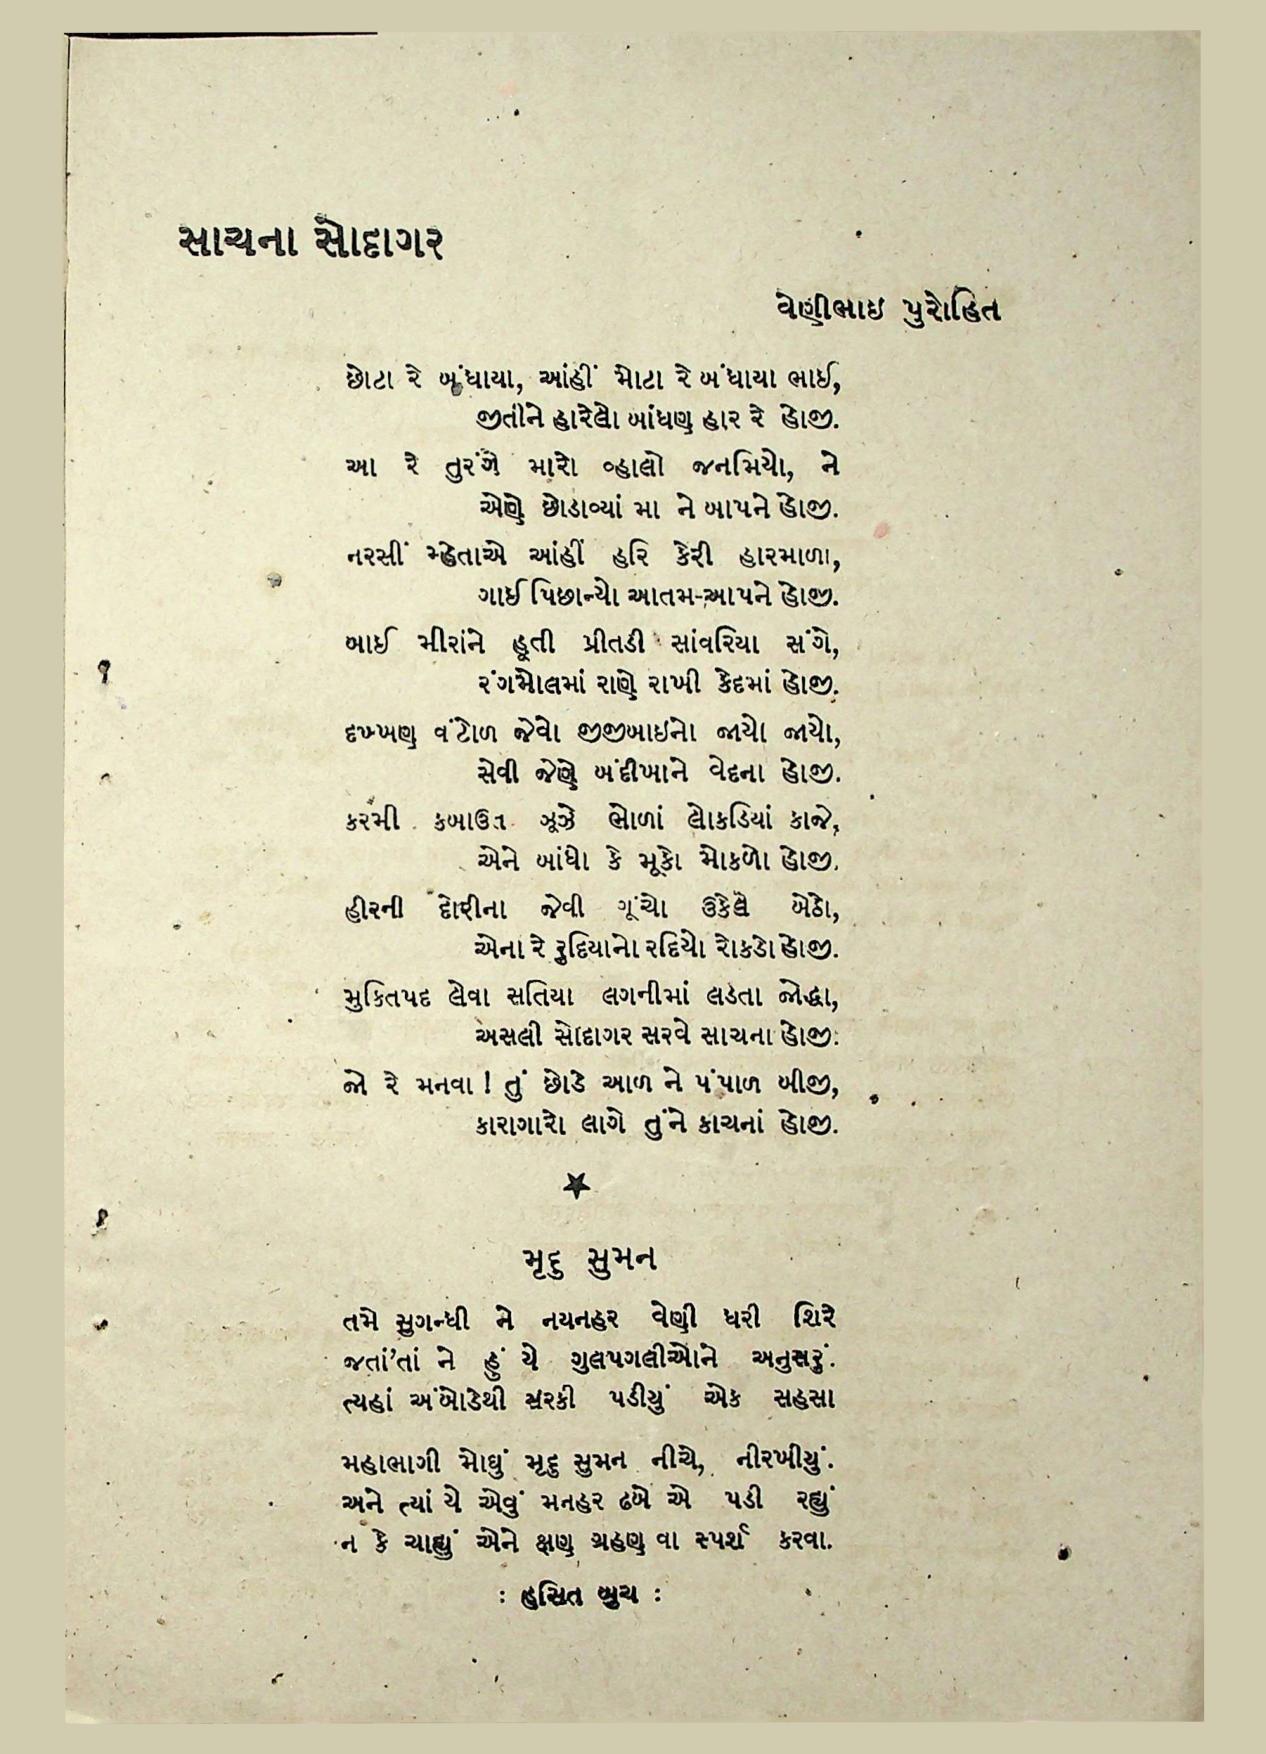 સાચના સોદાગર
વેણીભાઇ પુરોહિત
છોટા રે બંધાયા, આંહીં મોટા રે બંધાયા ભાઈ,
જીતીને હારેલો બાંધણ હાર રે હોજી.
આ રે તુરંગે મારો વ્હાલો જનમિયો, ને
એણે છોડાવ્યાં મા ને બાપને હોજી.
નરસીં મ્હેતાએ આંહીં હરિ કેરી હારમાળા,
ગાઈ પિછાન્યો આતમ-આપને હોજી.
બાઈ મીરાંને હૂતી પ્રીતડી સાંવરિયા સંગે,
રંગમોલમાં રાણે રાખી કેદમાં હોજી.
દખ્ખણ વંટોળ જેવો જીજીબાઇનો જાયો જાયો,
સેવી જેણે બંદીખાને વેદના હોજી.
કરમી કબાઉત ઝૂઝે ભોળાં લોકડિયાં કાજે,
એને બાંધો કે મૂકો મોકળો હોજી.
હીરની દોરીના જેવી ગૂંચો ઉકેલે બેઠો,
એના રે રુદિયાનો રદિયો રોકડો હોજી.
મુક્તિપદ લેવા સતિયા લગનીમાં લડતા જોદ્ધા,
અસલી સોદાગર સરવે સાચના હોજી.
જો રે મનવા ! તું છોડે આળ ને પંપાળ બીજી,
કારાગારો લાગે તુંને કાચનાં હોજી.
★
મૃદુ સુમન
તમે સુગન્ધી ને નયનહર વેણી ધરી શિરે
જતાં'તાં ને હું યે ગુલપગલીઓને અનુસરું.
ત્યહાં અંબોડેથી સરકી પડીયું એક સહસા
મહાભાગી મોઘું મૃદુ સુમન નીચે, નીરખીયું.
અને ત્યાં યે એવું મનહર ઢબે એ પડી રહ્યું
ન કે ચાહ્યું એને ક્ષણ ગ્રહણ વા સ્પર્શ કરવા.
: હસિત બુચ :